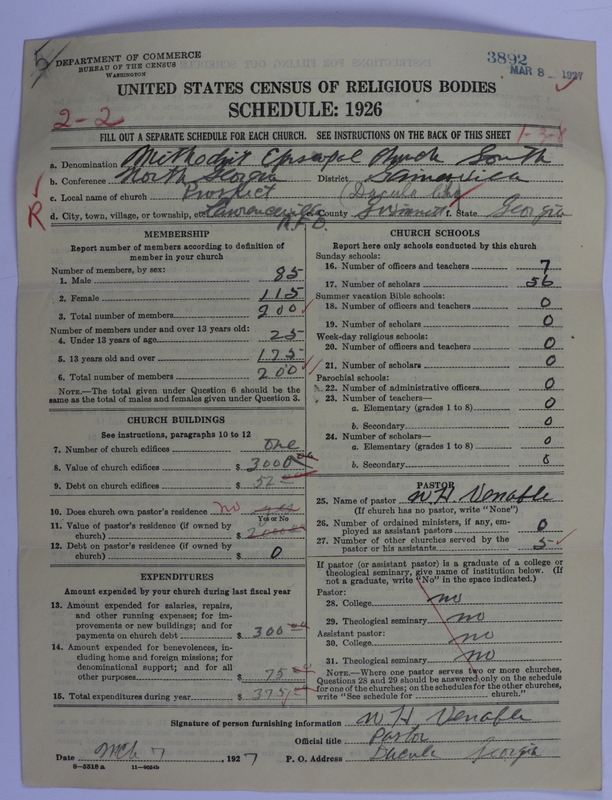 DEPARTMENT OF COMMERCE
BUREAU OF THE CENSUS
WASHINGTON
3892
MAR 8 1927
UNITED STATES CENSUS OF RELIGIOUS BODIES
SCHEDULE: 1926
2-2
FILL OUT A SEPARATE SCHEDULE FOR EACH CHURCH. SEE INSTRUCTIONS ON THE BACK OF THIS SHEET
1-3-8
a. Denomination Methodist Episcopal Church South
b. Conference North Georgia District Gainesville
c. Local name of church Prospect (Dacula Chg
R
d. City, town, village, or township, etc Lawrenceville R.F.D. County Gwinnett State Georgia
MEMBERSHIP
Report number of members according to definition of
member in your church
Number of members, by sex:
1. Male 85
2. Female 115
3. Total number of members 200
Number of members under and over 13 years old:
4. Under 13 years of age 25
5. 13 years old and over 175
6. Total number of members 200
NOTE.—The total given under Question 6 should be the
same as the total of males and females given under Question 3.
CHURCH BUILDINGS
See instructions, paragraphs 10 to 12
7. Number of church edifices one
8. Value of church edifices $ 3000 00
9. Debt on church edifices $
10. Does church own pastor's residence no yes
Yes or No
11. Value of pastor's residence (if owned by
church) $
12. Debt on pastor's residence (if owned by
church) $ 0
EXPENDITURES
Amount expended by your church during last fiscal year
13. Amount expended for salaries, repairs,
and other running expenses; for im-
provements or new buildings; and for
payments on church debt $ 300 00
14. Amount expended for benevolences, in-
cluding home and foreign missions; for
denominational support; and for all
other purposes $ 75 00
15. Total expenditures during year $ 375 00
CHURCH SCHOOLS
Report here only schools conducted by this church
Sunday schools:
16. Number of officers and teachers 7
17. Number of scholars 56
Summer vacation Bible schools:
18. Number of officers and teachers 0
19. Number of scholars 0
Week-day religious schools:
20. Number of officers and teachers 0
21. Number of scholars 0
Parochial schools:
22. Number of administrative officers 0
23. Number of teachers—
a. Elementary (grades 1 to 8) 0
b. Secondary 0
24. Number of scholars—
a. Elementary (grades 1 to 8) 0
b. Secondary 0
PASTOR
25. Name of pastor W. H. Venable
(If church has no pastor, write "None")
26. Number of ordained ministers, if any, em-
ployed as assistant pastors 0
27. Number of other churches served by the
pastor or his assistants 5
If pastor (or assistant pastor) is a graduate of a college or
theological seminary, give name of institution below. (If
not a graduate, write "No" in the space indicated.)
Pastor:
28. College no
29. Theological seminary no
Assistant pastor:
30. College no
31. Theological seminary no
NOTE.—Where one pastor serves two or more churches,
Questions 28 and 29 should be answered only on the schedule
for one of the churches; on the schedules for the other churches,
write "See schedule for church."
Signature of person furnishing information W H Venable
Official title Pastor
Date Mch 7, 1927 P. O. Address Dacula Georgia
8—5518 a